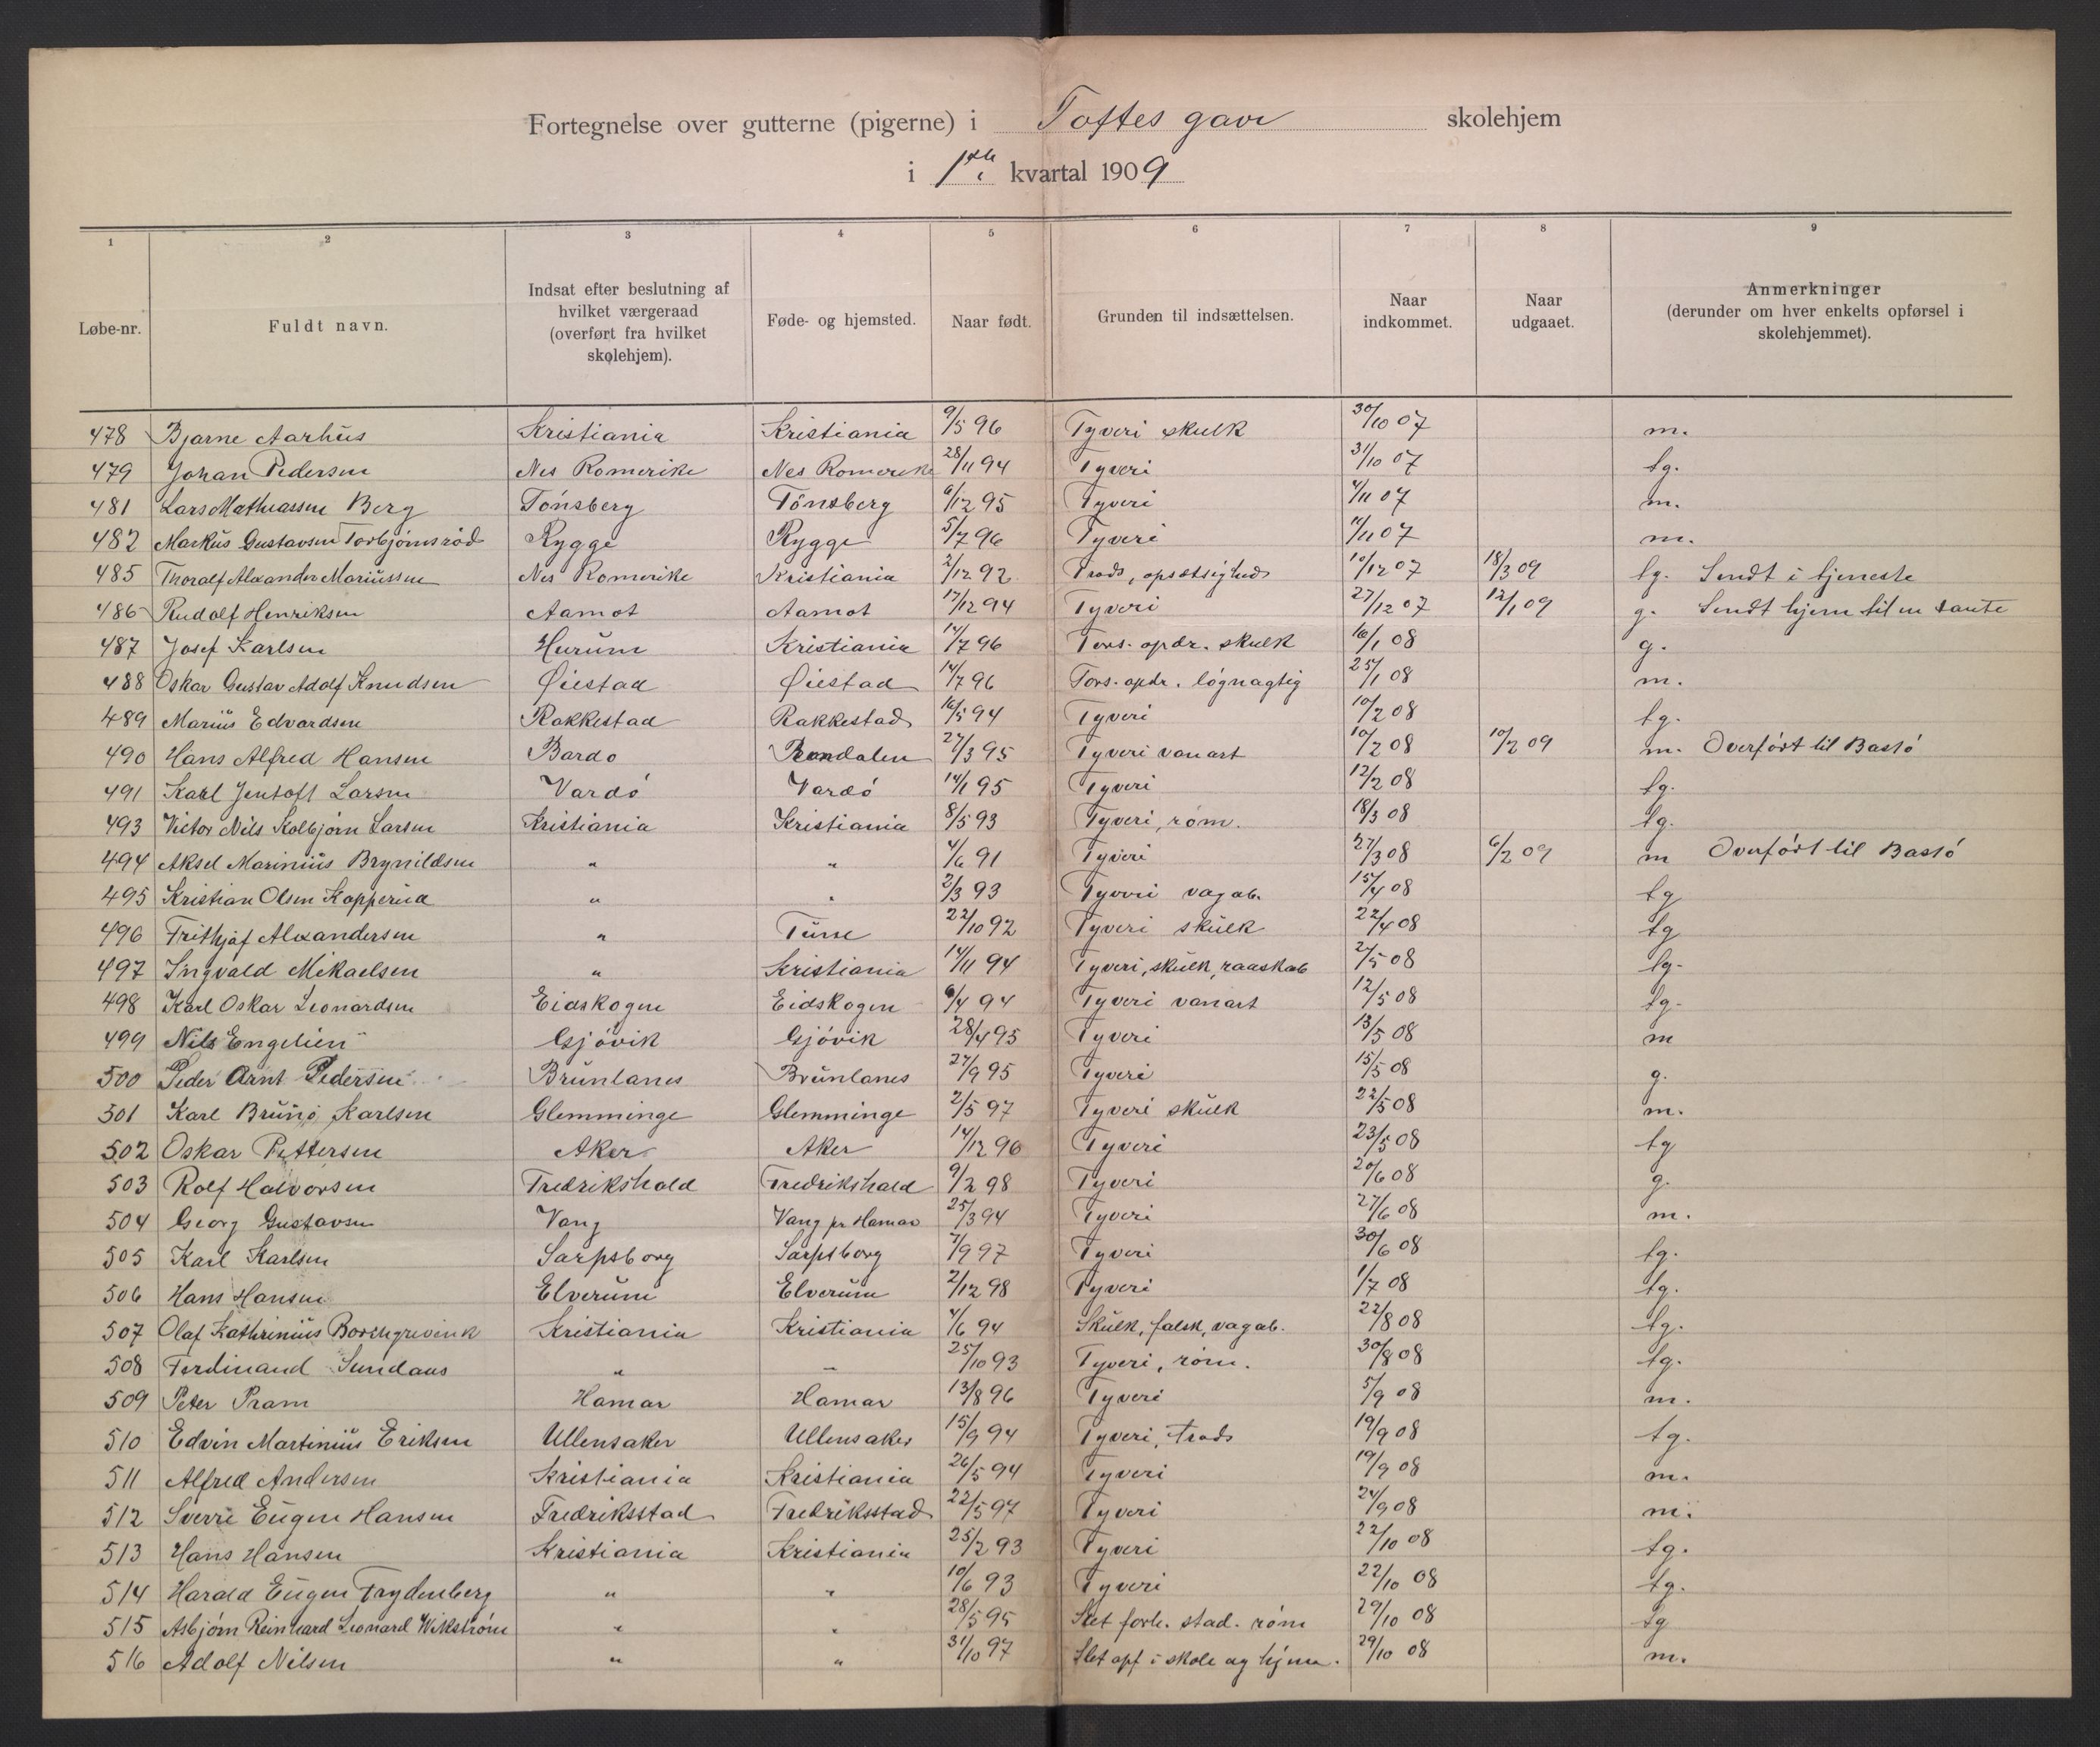 Fortegnelse over gutterne (pigerne) i Toftes gave skolehjem
i 1ste kvartal 1909
1 2 3 4 5 6 7 8 9
Løbe-nr. Fuldt navn. Indsat efter beslutning af hvilket værgeraad (overført fra hvilket skolehjem). Føde- og hjemsted. Naar født. Grunden til indsættelsen. Naar indkommet. Naar udgaaet. Anmerkninger (derunder om hver enkelts opførsel i skolehjemmet).
478 Bjarne Aarhus Kristiania Kristiania 9/5 96 Tyveri skulk 30/10 07 m.
479 Johan Pedersen Nes Romerike Nes Romerike 28/11 94 Tyveri 31/10 07 tg.
481 Lars Mathiassen Berg Tönsberg Tönsberg 6/12 95 Tyveri 4/11 07 m.
482 Markus Gustavsen Torbjörnsröd Rygge Rygge 5/7 96 Tyveri 11/11 07 m.
485 Thoralf Alexander Mariussen Nes Romerike Kristiania 2/12 92 Trods, opsætsighed 10/12 07 18/3 09 tg. Sendt i tjeneste
486 Rudolf Henriksen Aamot Aamot 17/12 94 Tyveri 27/12 07 12/1 09 g. Sendt hjem til en tante
487 Josef Karlsen Hurum Kristiania 14/7 96 Fors. opdr. skulk 16/1 08 g.
488 Oskar Gustav Adolf Knudsen Øiestad Øiestad 14/7 96 Fors. opdr. lögnagtig 25/1 08 m.
489 Marius Edvardsen Rakkestad Rakkestad 16/5 94 Tyveri 10/2 08 tg.
490 Hans Alfred Hansen Bardo Rendalen 27/3 95 Tyveri vanart 10/2 08 10/2 09 m. Overfört til Bastö
491 Karl Jentoft Larsen Vardö Vardö 14/1 95 Tyveri 12/2 08 tg.
493 Victor Nils Kolbjörn Larsen Kristiania Kristiania 8/5 93 Tyveri, röm. 18/3 08 tg.
494 Aksel Marinius Brynildsen " " 4/6 91 Tyveri 27/3 08 6/2 09 m Overfört til Bastö
495 Kristian Olsen Kopperud " " 2/3 93 Tyveri vagab. 15/4 08 tg
496 Frithjof Alexandersen " Tune 22/10 92 Tyveri skulk 22/4 08 tg
497 Ingvald Mikaelsen " Kristiania 14/11 94 Tyveri, skulk, raaskab 2/5 08 tg.
498 Karl Oskar Leonardsen Eidskogen Eidskogen 6/4 94 Tyveri vanart 12/5 08 tg.
499 Nils Engelien Gjövik Gjövik 28/4 95 Tyveri 13/5 08 m
500 Peder Arnt Pedersen Brunlanes Brunlanes 27/9 95 Tyveri 15/5 08 g.
501 Karl Bruno Karlsen Glemminge Glemminge 2/5 97 Tyveri skulk 22/5 08 m.
502 Oskar Pettersen Aker Aker 14/12 96 Tyveri 23/5 08 tg
503 Rolf Halvorsen Fredrikshald Fredrikshald 9/2 98 Tyveri 20/6 08 g.
504 Georg Gustavsen Vang Vang pr Hamar 25/3 94 Tyveri 27/6 08 m.
505 Karl Karlsen Sarpsborg Sarpsborg 7/9 97 Tyveri 30/6 08 tg.
506 Hans Hansen Elverum Elverum 2/12 98 Tyveri 1/7 08 tg.
507 Olaf Kathrinius Borchgrevink Kristiania Kristiania 4/6 94 Skulk, falsk, vagab. 22/8 08 tg.
508 Ferdinand Sundaas " " 25/10 93 Tyveri, röm. 30/8 08 tg.
509 Peter Pram Hamar Hamar 13/8 96 Tyveri 5/9 08 m.
510 Edvin Martinius Eriksen Ullensaker Ullensaker 15/9 94 Tyveri, trods 19/9 08 tg.
511 Alfred Andersen Kristiania Kristiania 26/5 94 Tyveri 19/9 08 m.
512 Sverre Eugen Hansen Fredriksstad Fredriksstad 22/5 97 Tyveri 24/9 08 m.
513 Hans Hansen Kristiania Kristiania 25/2 93 Tyveri 22/10 08 tg.
514 Harald Eugen Frydenberg " " 10/6 93 Tyveri 22/10 08 tg.
515 Asbjörn Reinhard Leonard Wikström " " 28/5 95 Slet forh. stad. röm 29/10 08 tg
516 Adolf Nilsen " " 31/10 97 Slet opf i skole og hjem. 29/10 08 m.